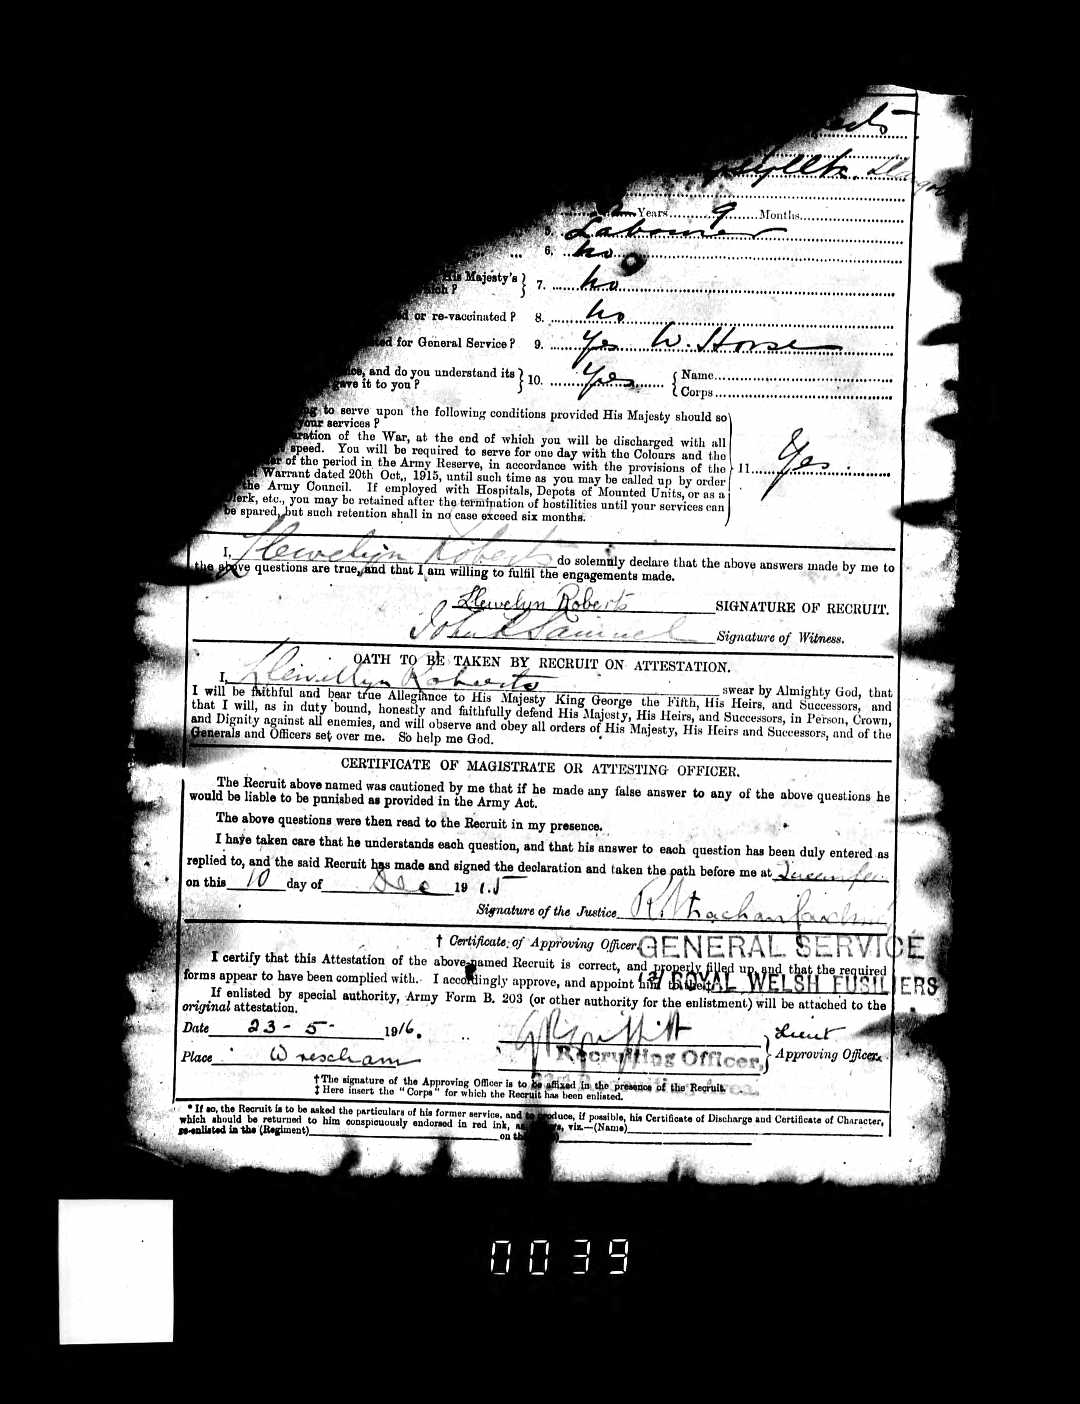 Years 9 Months
5. Labourer
6. No
His Majesty's
7. No
or re-vaccinated? 8. No
for General Service? 9. Yes W. Horse
and do you understand its
10. Yes { Name
gave it to you? { Corps
to serve upon the following conditions provided His Majesty should so
your services?
of the War, at the end of which you will be discharged with all
speed. You will be required to serve for one day with the Colours and the
of the period in the Army Reserve, in accordance with the provisions of the 11. Yes
Warrant dated 20th Oct., 1915, until such time as you may be called up by order
the Army Council. If employed with Hospitals, Depots of Mounted Units, or as a
etc., you may be retained after the termination of hostilities until your services can
be spared, but such retention shall in no case exceed six months.
I, Llewelyn Roberts do solemnly declare that the above answers made by me to
the above questions are true, and that I am willing to fulfil the engagements made.
Llewelyn Roberts SIGNATURE OF RECRUIT.
John Samuel Signature of Witness.
OATH TO BE TAKEN BY RECRUIT ON ATTESTATION.
I, Llewellyn Roberts swear by Almighty God, that
I will be faithful and bear true Allegiance to His Majesty King George the Fifth, His Heirs, and Successors, and
that I will, as in duty bound, honestly and faithfully defend His Majesty, His Heirs, and Successors, in Person, Crown,
and Dignity against all enemies, and will observe and obey all orders of His Majesty, His Heirs and Successors, and of the
Generals and Officers set over me. So help me God.
CERTIFICATE OF MAGISTRATE OR ATTESTING OFFICER.
The Recruit above named was cautioned by me that if he made any false answer to any of the above questions he
would be liable to be punished as provided in the Army Act.
The above questions were then read to the Recruit in my presence.
I have taken care that he understands each question, and that his answer to each question has been duly entered as
replied to, and the said Recruit has made and signed the declaration and taken the oath before me at
on this 10 day of Dec 1915
Signature of the Justice
† Certificate of Approving Officer. GENERAL SERVICE
I certify that this Attestation of the above-named Recruit is correct, and properly filled up, and that the required
forms appear to have been complied with. I accordingly approve, and appoint him to the‡ ROYAL WELSH FUSILIERS
If enlisted by special authority, Army Form B. 203 (or other authority for the enlistment) will be attached to the
original attestation.
Date 23-5- 1916. Lieut
Recruiting Officer, Approving Officer.
Place Wrexham
† The signature of the Approving Officer is to be affixed in the presence of the Recruit.
‡ Here insert the "Corps" for which the Recruit has been enlisted.
* If so, the Recruit is to be asked the particulars of his former service, and to produce, if possible, his Certificate of Discharge and Certificate of Character,
which should be returned to him conspicuously endorsed in red ink, as follows, viz.—(Name)
re-enlisted in the (Regiment) on the
0039